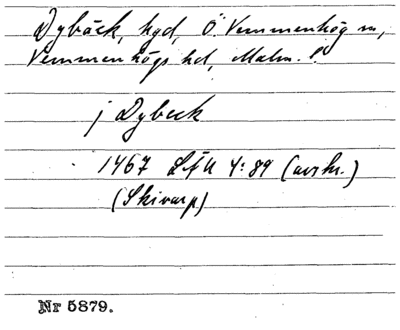 Dybäck, hgd, Ö. Vemmenhög sn,
Vemmenhögs hd, Malm. l.
j Dybeck
1467 LfU 4:89 (avskr.)
(Skivarp)
Nr 5879.